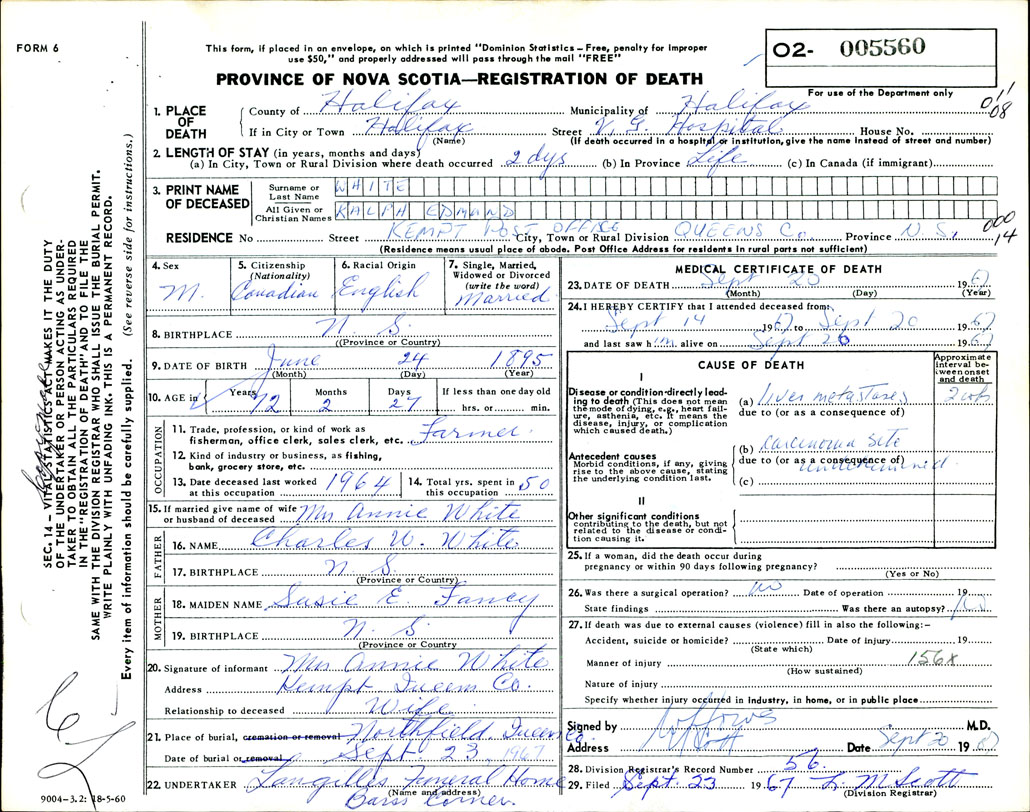 FORM 6
This form, if placed in an envelope, on which is printed "Dominion Statistics – Free, penalty for improper
use $50," and properly addressed will pass through the mail "FREE"
PROVINCE OF NOVA SCOTIA—REGISTRATION OF DEATH
O2- 005560
For use of the Department only
011
08
1. PLACE OF DEATH
County of Halifax Municipality of Halifax
If in City or Town Halifax Street V. G. Hospital House No.
(Name) (If death occurred in a hospital or institution, give the name instead of street and number)
2. LENGTH OF STAY (in years, months and days)
(a) In City, Town or Rural Division where death occurred 2 dys (b) In Province Life (c) In Canada (if immigrant)
3. PRINT NAME OF DECEASED
Surname or Last Name WHITE
All Given or Christian Names RALPH EDMAND
000
14
RESIDENCE No Street KEMPT POST OFFICE City, Town or Rural Division QUEENS Co. Province N. S.
(Residence means usual place of abode. Post Office Address for residents in rural parts not sufficient)
4. Sex M.
5. Citizenship (Nationality) Canadian
6. Racial Origin English
7. Single, Married, Widowed or Divorced (write the word) Married
8. BIRTHPLACE N. S.
(Province or Country)
9. DATE OF BIRTH June 24 1895
(Month) (Day) (Year)
10. AGE in Years 72 Months 2 Days 27 If less than one day old hrs. or min.
OCCUPATION
11. Trade, profession, or kind of work as
fisherman, office clerk, sales clerk, etc. Farmer
12. Kind of industry or business, as fishing,
bank, grocery store, etc.
13. Date deceased last worked at this occupation 1964
14. Total yrs. spent in this occupation 50
15. If married give name of wife or husband of deceased Mrs Annie White
FATHER
16. NAME Charles W. White
17. BIRTHPLACE N S.
(Province or Country)
MOTHER
18. MAIDEN NAME Susie E Fancy
19. BIRTHPLACE N. S.
(Province or Country
20. Signature of informant Mrs Annie White
Address Kempt Queens Co.
Relationship to deceased Wife
21. Place of burial, cremation or removal Northfield Queens Co.
Date of burial or removal Sept 23 1967
22. UNDERTAKER Langilles Funeral Home
(Name and address)
Barss Corner.
9004-3.2: 18-5-60
MEDICAL CERTIFICATE OF DEATH
23. DATE OF DEATH Sept 20 1967
(Month) (Day) (Year)
24. I HEREBY CERTIFY that I attended deceased from
Sept 14 1967 to Sept 20 1967
and last saw him alive on Sept 20 1967
CAUSE OF DEATH
Approximate interval between onset and death
I
Disease or condition directly leading to death (This does not mean
the mode of dying, e.g., heart failure, asthenia, etc. It means the
disease, injury, or complication
which caused death.)
(a) liver metastases
due to (or as a consequence of)
Antecedent causes
Morbid conditions, if any, giving
rise to the above cause, stating
the underlying condition last.
(b) carcinoma site
due to (or as a consequence of)
undetermined
(c)
II
Other significant conditions
contributing to the death, but not
related to the disease or condition causing it.
25. If a woman, did the death occur during
pregnancy or within 90 days following pregnancy?
(Yes or No)
26. Was there a surgical operation? no Date of operation 19
State findings Was there an autopsy?
27. If death was due to external causes (violence) fill in also the following:-
Accident, suicide or homicide? Date of injury 19
(State which)
Manner of injury 156X
(How sustained)
Nature of injury
Specify whether injury occurred in industry, in home, or in public place
Signed by M.D.
Address Date Sept 20 1967
28. Division Registrar's Record Number 56.
29. Filed Sept 23 1967 L. M Scott
(Division Registrar)
SEC. 14 – VITAL STATISTICS ACT MAKES IT THE DUTY
OF THE UNDERTAKER OR PERSON ACTING AS UNDERTAKER TO OBTAIN ALL THE PARTICULARS REQUIRED
IN THE "REGISTRATION OF DEATH" AND TO FILE THE
SAME WITH THE DIVISION REGISTRAR WHO SHALL ISSUE THE BURIAL PERMIT.
WRITE PLAINLY WITH UNFADING INK. THIS IS A PERMANENT RECORD.
Every item of information should be carefully supplied. (See reverse side for instructions.)